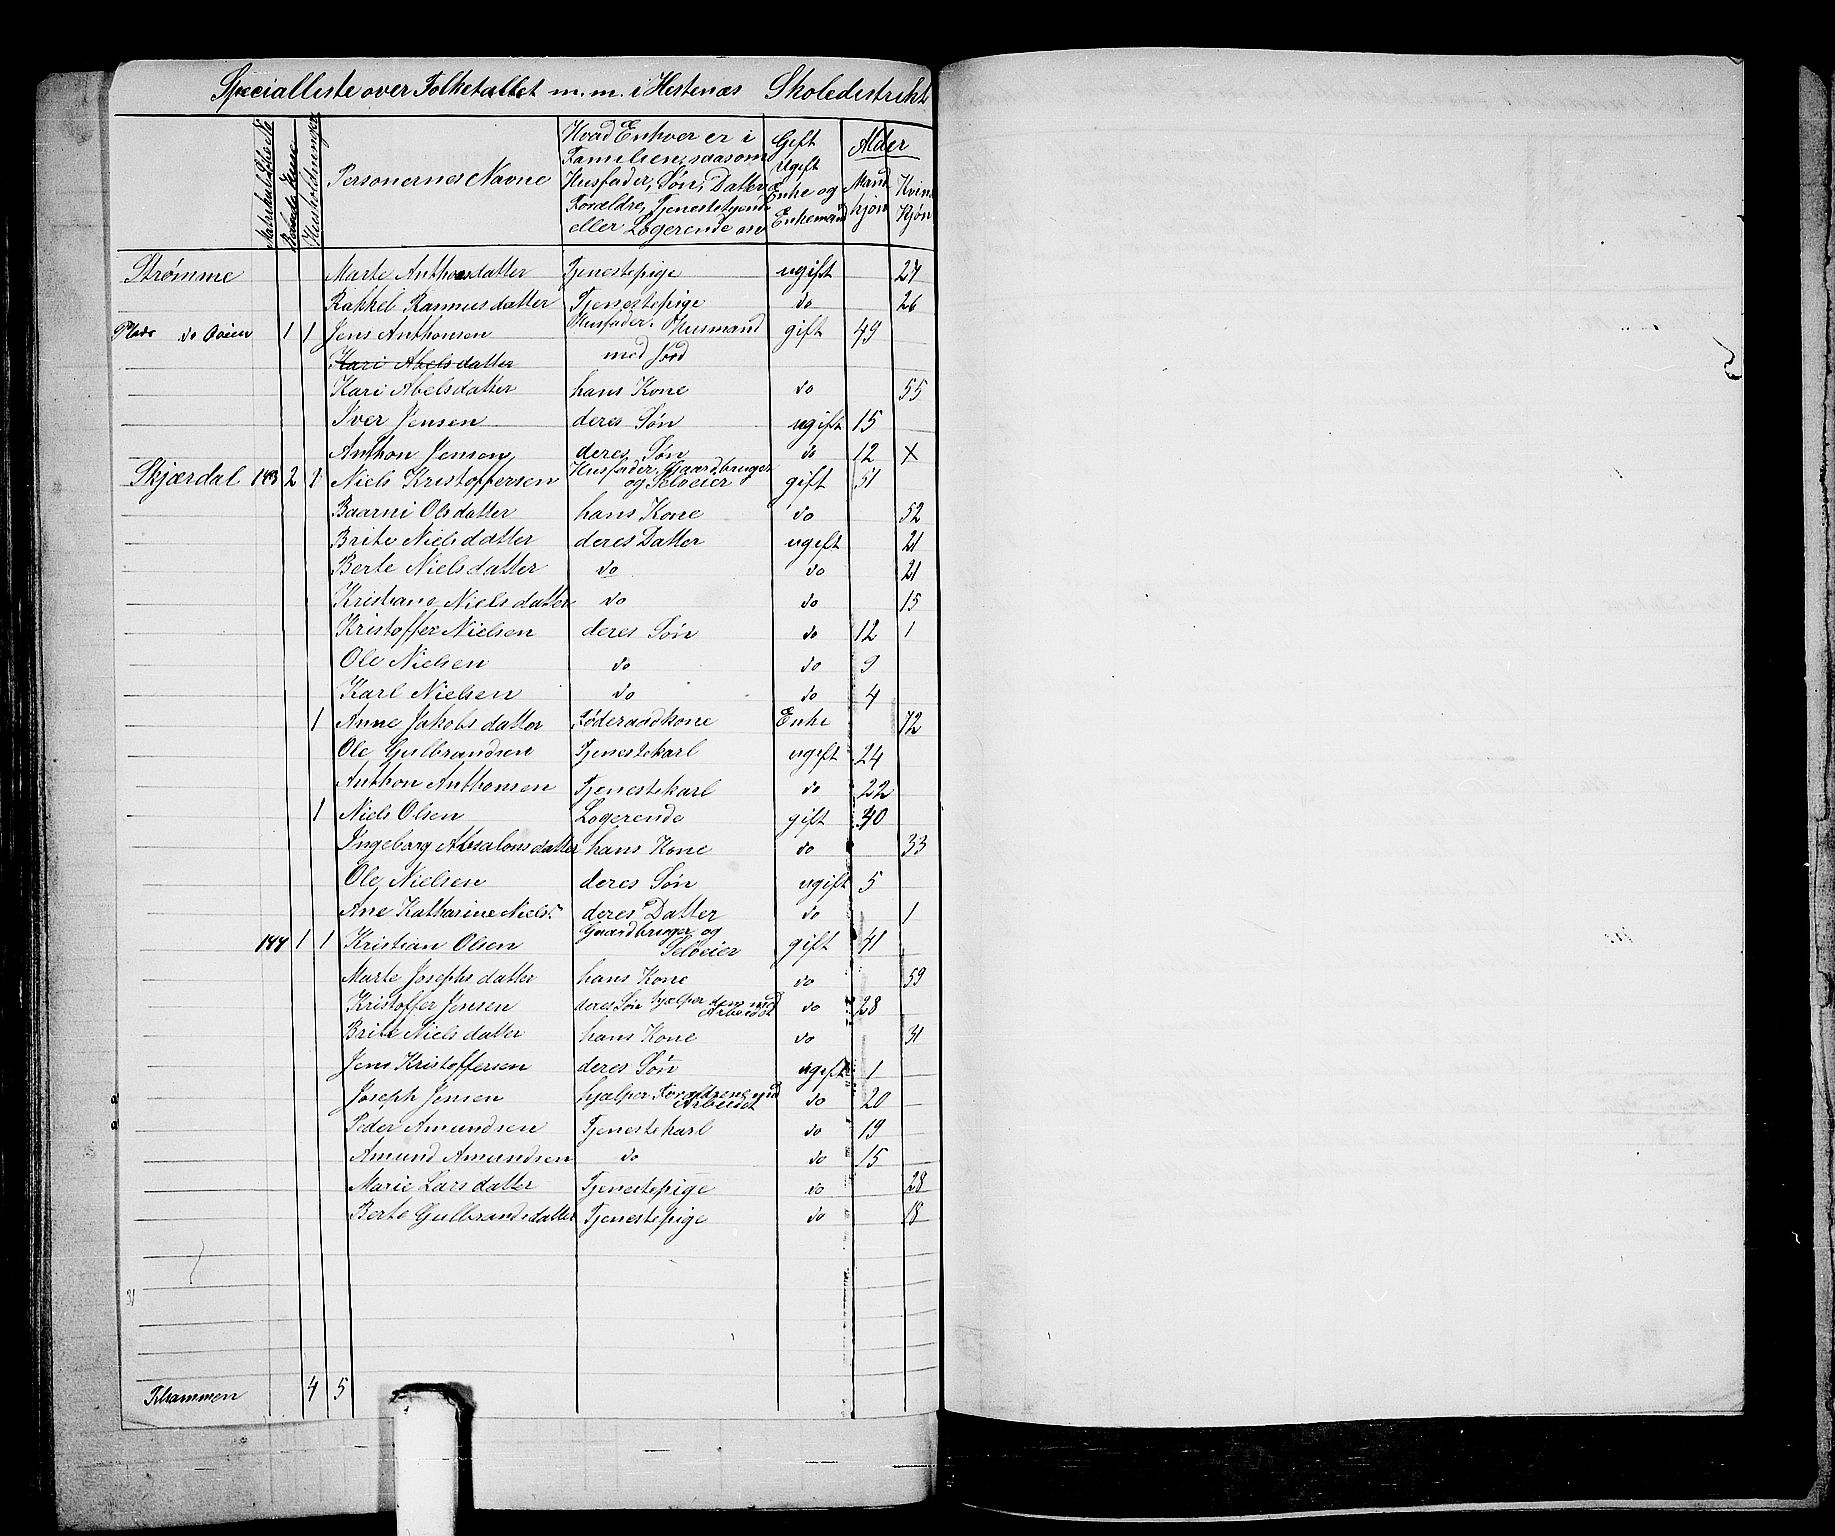 Specialliste over Folketallet m. m. i Hestenæs Skoledistrikt
Matrikul Løbe No
Beboede Huse
Husholdninger
Personernes Navne
Hvad Enhver er i Familien, saasom Husfader, Søn, Datter, Forældre, Tjenestetyende eller Logerende osv
Gift Ugift Enke og Enkemand
Alder
Mandkjøn
Kvindkjøn
Strømme Marte Anthonsdatter Tjenestepige ugift 27
Rakkel Rasmusdatter Tjenestepige do 26
Plads do 1 1 Jens Anthonsen Husfader. Husmand med Jord gift 49
Kari Abelsdatter
Kari Abelsdatter hans Kone do 55
Iver Jensen deres Søn ugift 15
Anthon Jensen deres Søn do 12 x
Skjærdal 143 2 1 Niels Kristoffersen Husfader, Gaardbruger og Selveier gift 51
Baarni Olsdatter hans Kone do 52
Brite Nielsdatter deres Datter ugift 21
Berte Nielsdatter do do 21
Kristiane Nielsdatter do do 15
Kristoffer Nielsen deres Søn do 12 1
Ole Nielsen do do 9
Karl Nielsen do do 4
1 Anne Jakobsdatter Føderaadkone Enke 72
Ole Gulbrandsen Tjenestekarl ugift 24
Anthon Anthonsen Tjenestekarl do 22
1 Niels Olsen Logerende gift 40
Ingeborg Absalonsdatter hans Kone do 33
Ole Nielsen deres Søn ugift 5
Ane Katharine Nielsd. deres Datter do 1
144 1 1 Kristian Olsen Gaardbruger og Selveier gift 41
Marte Josephsdatter hans Kone do 59
Kristoffer Jensen deres Søn hjælper dem med Arbeidet do 28
Brite Nielsdatter hans Kone do 31
Jens Kristoffersen deres Søn ugift 1
Joseph Jensen hjælper Forældrene med Arbeidet do 20
Peder Amundsen Tjenestekarl do 19
Amund Amundsen do do 15
Marie Larsdatter Tjenestepige do 28
Berte Gulbrandsdatter Tjenestepige do 18
Tilsammen 4 5